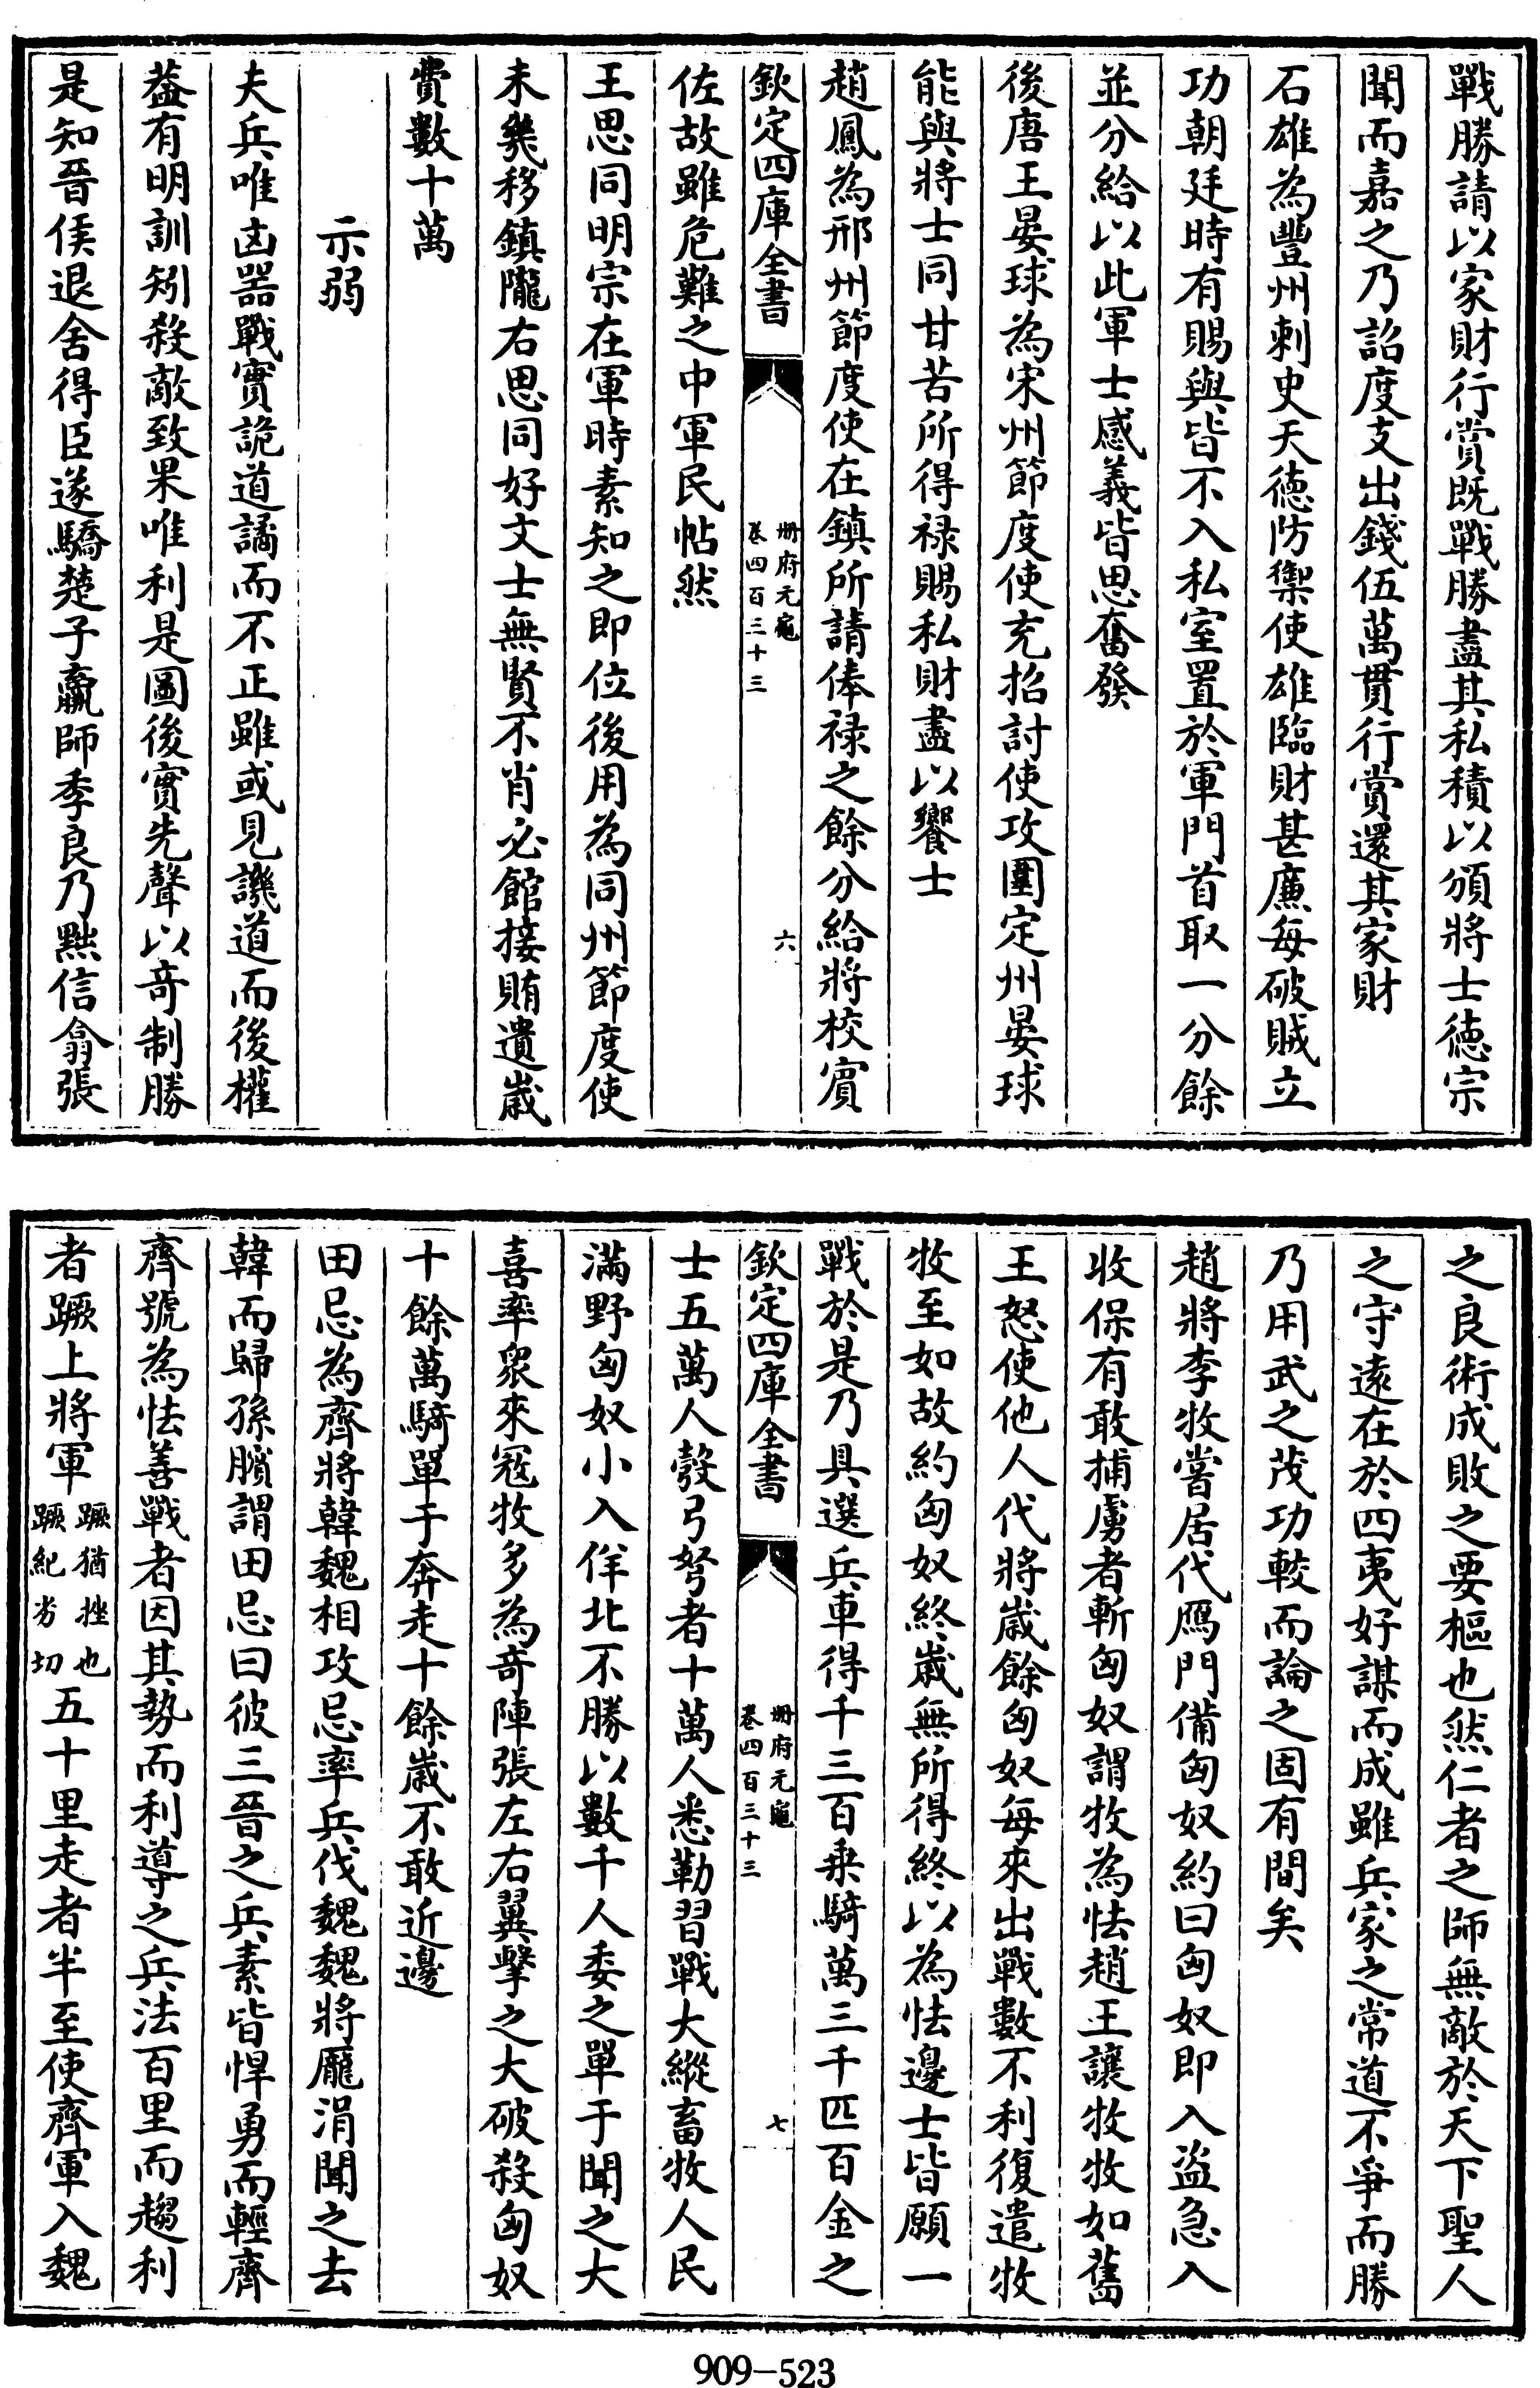 戰勝請以家財行賞既戰勝盡其私積以頒將士徳宗
聞而嘉之乃詔度支出錢伍萬貫行賞還其家財
石雄為豐州刺史天徳防禦使雄臨財甚廉每破賊立
功朝廷時有賜與皆不入私室置於軍門首取一分餘
並分給以此軍士感義皆思奮發
後唐王晏球為宋州節度使充招討使攻圍定州晏球
能與將士同甘苦所得禄賜私財盡以饗士
趙鳳為邢州節度使在鎮所請俸禄之餘分給將校賓
欽定四庫全書
册府元龜
卷四百三十三
六
佐故雖危難之中軍民帖然
王思同明宗在軍時素知之即位後用為同州節度使
未幾移鎮隴右思同好文士無賢不肖必館接賄遺歳
費數十萬
示弱
夫兵唯凶器戰實詭道譎而不正雖或見譏道而後權
葢有明訓矧殺敵致果唯利是圖後實先聲以竒制勝
是知晉侯退舍得臣遂驕楚子羸師季良乃黜信翕張
之良術成敗之要樞也然仁者之師無敵於天下聖人
之守逺在於四夷好謀而成雖兵家之常道不爭而勝
乃用武之茂功較而論之固有間矣
趙將李牧嘗居代鴈門備匈奴約曰匈奴即入盜急入
收保有敢捕虜者斬匈奴謂牧為怯趙王讓牧牧如舊
王怒使他人代將歳餘匈奴每來出戰數不利復遣牧
牧至如故約匈奴終歳無所得終以為怯邊士皆願一
戰於是乃具選兵車得千三百乗騎萬三千匹百金之
欽定四庫全書
册府元龜
卷四百三十三
七
士五萬人彀弓弩者十萬人悉勒習戰大縱畜牧人民
滿野匈奴小入佯北不勝以數千人委之單于聞之大
喜率衆來冦牧多為竒陣張左右翼擊之大破殺匈奴
十餘萬騎單于奔走十餘歳不敢近邊
田忌為齊將韓魏相攻忌率兵伐魏魏將龐涓聞之去
韓而歸孫臏謂田忌曰彼三晉之兵素皆悍勇而輕齊
齊號為怯善戰者因其勢而利導之兵法百里而趨利
者蹶上將軍蹶猶挫也蹶紀劣切五十里走者半至使齊軍入魏
909-523